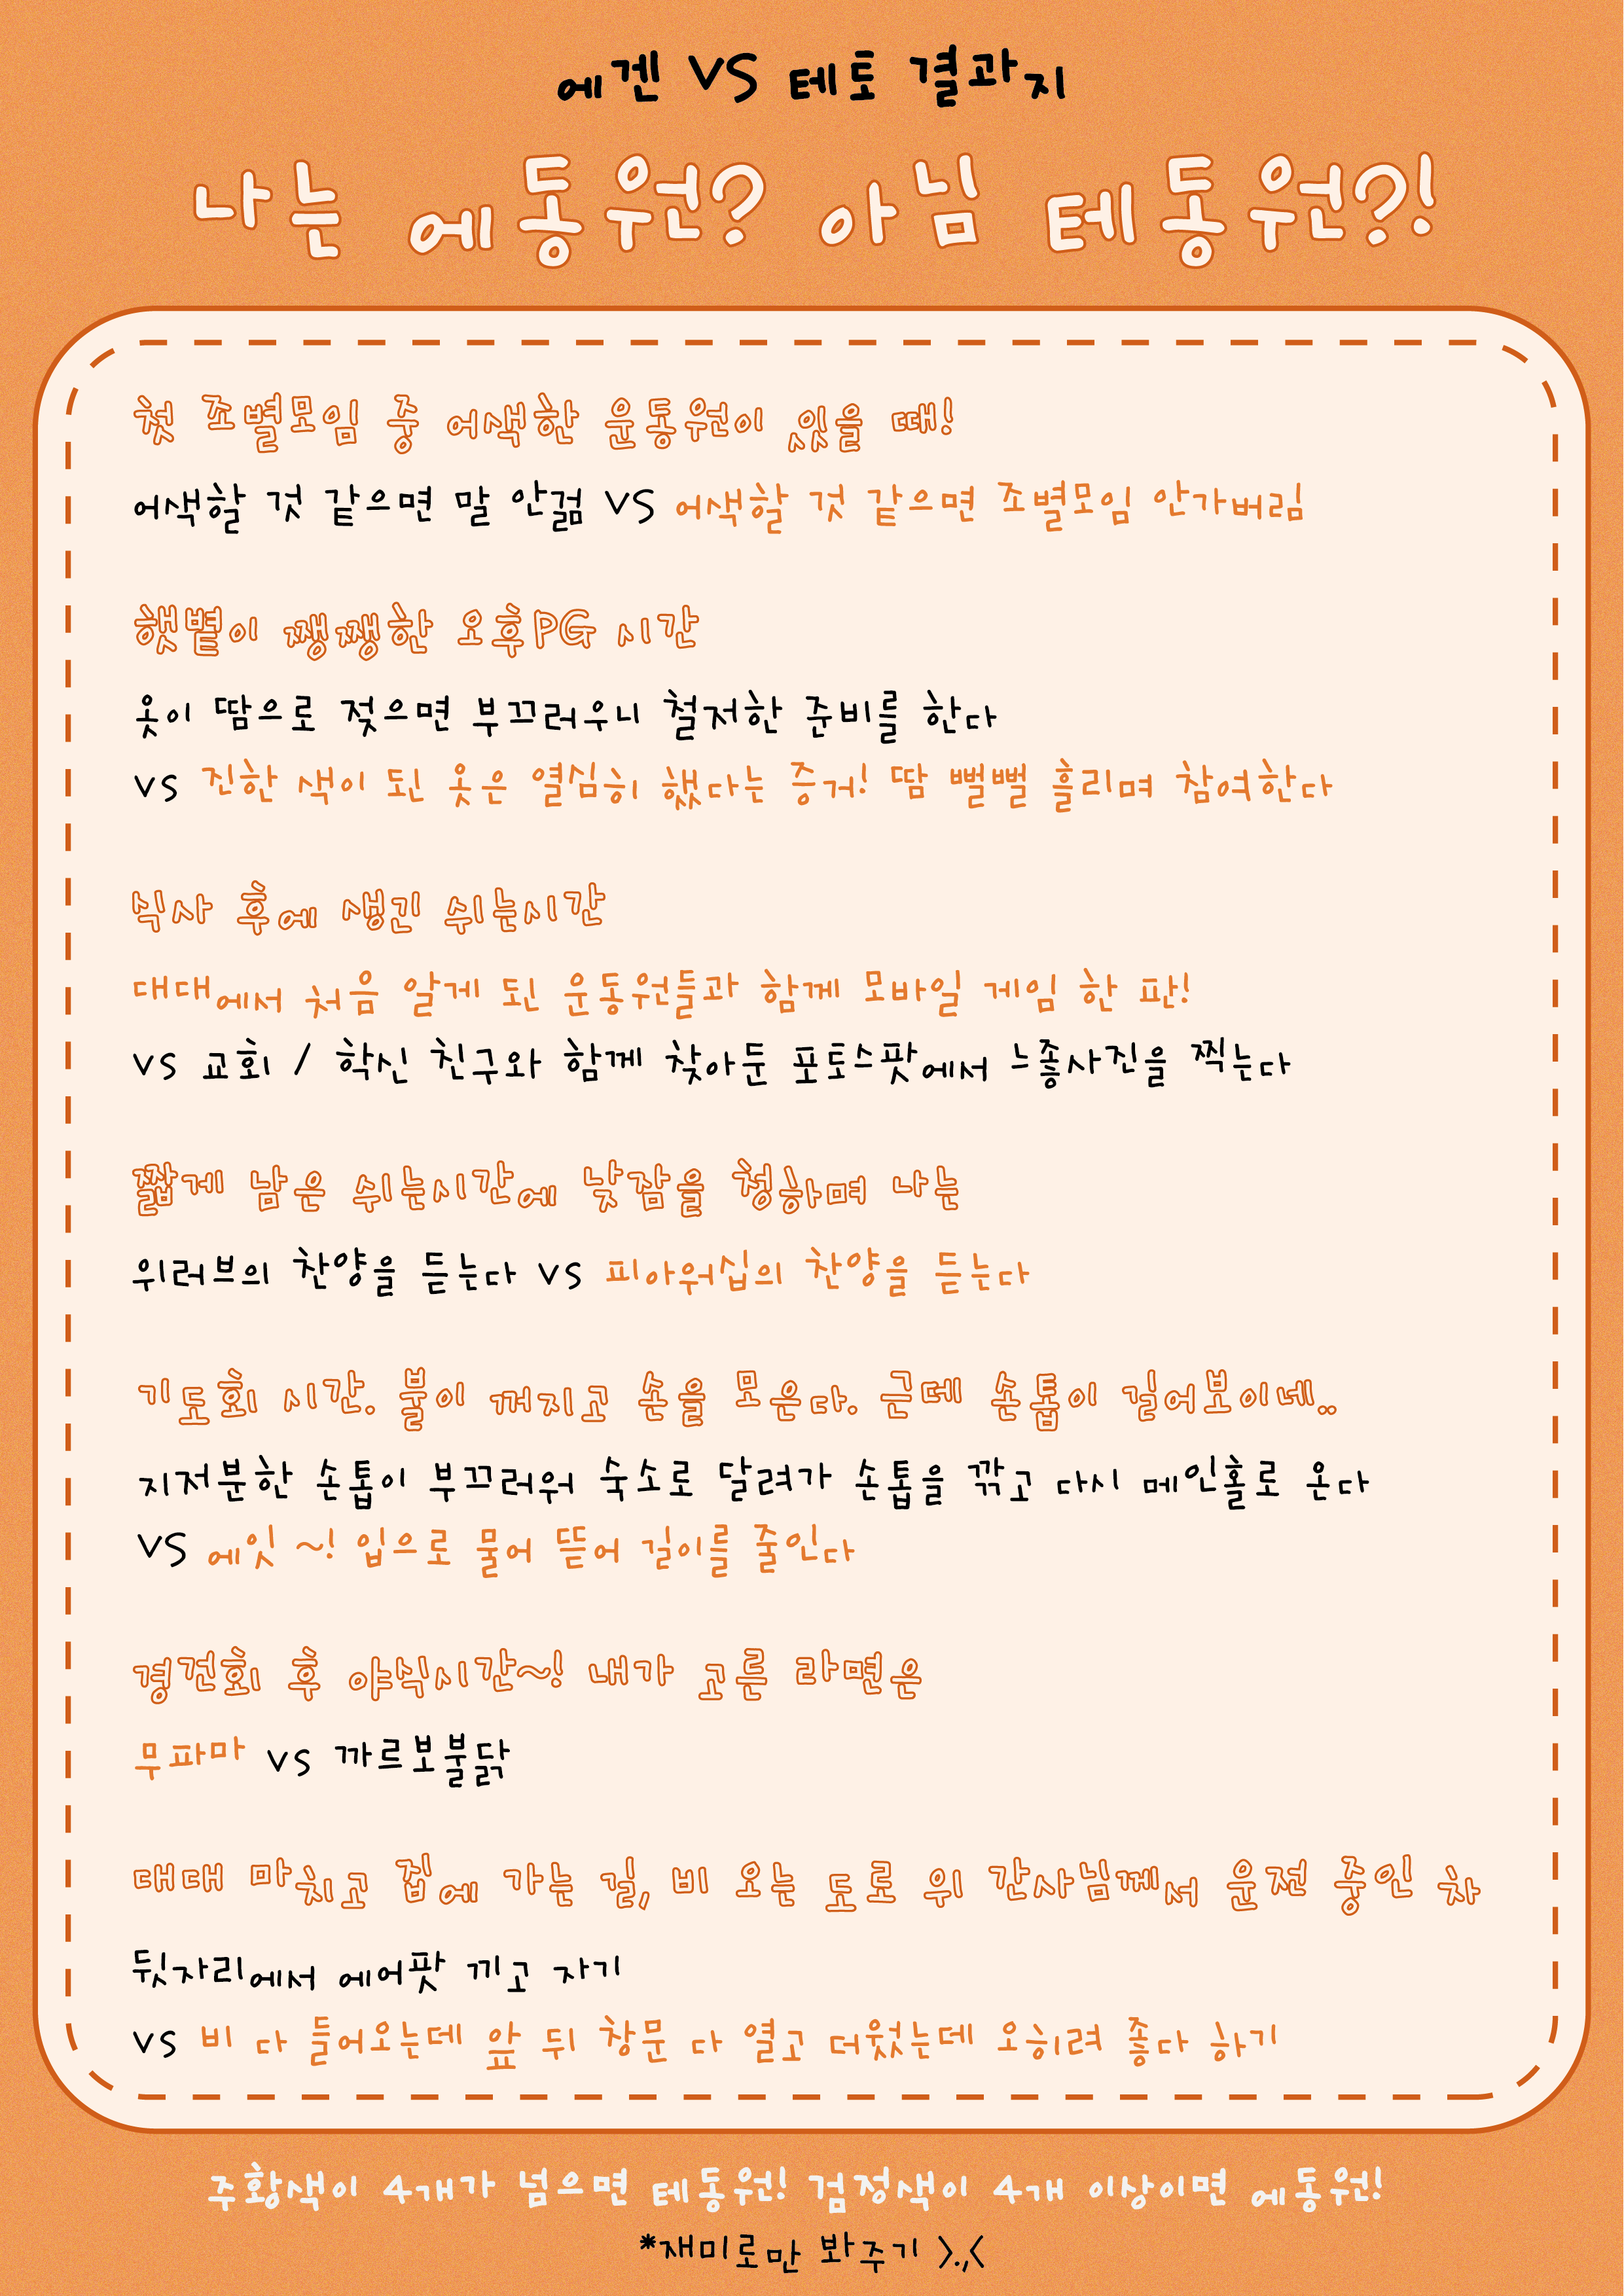 에겐 VS 테토 결과지
나는 에동원? 아님 테동원?!
첫 조별모임 중 어색한 운동원이 있을 때!
어색할 것 같으면 말 안걺 VS 어색할 것 같으면 조별모임 안가버림
햇볕이 쨍쨍한 오후PG 시간
옷이 땀으로 젖으면 부끄러우니 철저한 준비를 한다
VS 진한 색이 된 옷은 열심히 했다는 증거! 땀 뻘뻘 흘리며 참여한다
식사 후에 생긴 쉬는시간
대대에서 처음 알게 된 운동원들과 함께 모바일 게임 한 판!
VS 교회 / 학신 친구와 함께 찾아둔 포토스팟에서 느좋사진을 찍는다
짧게 남은 쉬는시간에 낮잠을 청하며 나는
위러브의 찬양을 듣는다 VS 피아워십의 찬양을 듣는다
기도회 시간. 불이 꺼지고 손을 모은다. 근데 손톱이 길어보이네..
지저분한 손톱이 부끄러워 숙소로 달려가 손톱을 깎고 다시 메인홀로 온다
VS 에잇 ~! 입으로 물어 뜯어 길이를 줄인다
경건회 후 야식시간~! 내가 고른 라면은
무파마 VS 까르보불닭
대대 마치고 집에 가는 길, 비 오는 도로 위 간사님께서 운전 중인 차
뒷자리에서 에어팟 끼고 자기
VS 비 다 들어오는데 앞 뒤 창문 다 열고 더웠는데 오히려 좋다 하기
주황색이 4개가 넘으면 테동원! 검정색이 4개 이상이면 에동원!
*재미로만 봐주기 >.,<